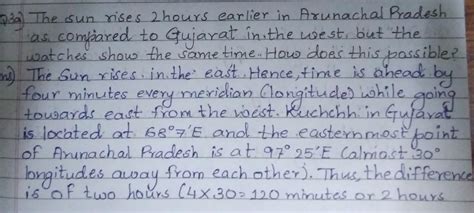 Q3a) The sun rises 2hours earlier in Arunachal Pradesh
as compared to Gujarat in the west. but the
watches show the same time. How does this possible?
ans) The Sun rises in the east. Hence, time is ahead by
four minutes every meridian (longitude) while going
towards east from the west. Kuchchh in Gujarat
is located at 68°7'E and the easternmost point
of Arunachal Pradesh is at 97° 25'E (almost 30°
longitudes away from each other). Thus, the difference
is of two hours (4x30=120 minutes or 2 hours